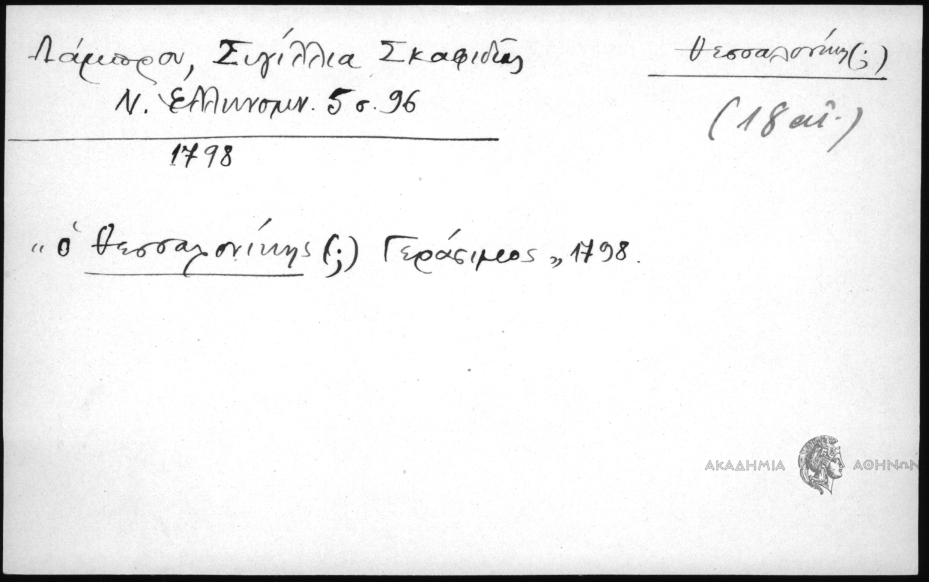 Λάμπρου, Σιγίλλια Σκαφιδιᾶς
Ν. Ἑλληνομν. 5 σ. 96
1798
Θεσσαλονίκη (;)
(18 αἰ.)
"ὁ Θεσσαλονίκης (;) Γεράσιμος" 1798.
ΑΚΑΔΗΜΙΑ ΑΘΗΝΩΝ